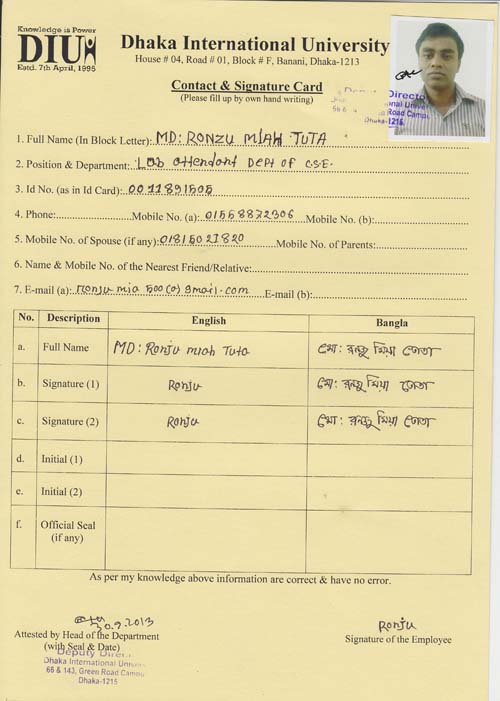 Knowledge is Power
DIU
Estd. 7th April, 1995
Dhaka International University
House # 04, Road # 01, Block # F, Banani, Dhaka-1213
Contact & Signature Card
(Please fill up by own hand writing)
Deputy Directo
Dhaka-1215
1. Full Name (In Block Letter): MD: RONZU MIAH TUTA
2. Position & Department: Lab attendant DEPT OF C.S.E.
3. Id No. (as in Id Card): 0011891505
4. Phone: Mobile No. (a): 01558872306 Mobile No. (b):
5. Mobile No. of Spouse (if any): 01815021820 Mobile No. of Parents:
6. Name & Mobile No. of the Nearest Friend/Relative:
7. E-mail (a): Ronju mia 500(@) gmail.com E-mail (b):
No. Description English Bangla
a. Full Name MD: Ronju miah Tuta মো: রনজু মিয়া তোতা
b. Signature (1) Ronju মো: রনজু মিয়া তোতা
c. Signature (2) Ronju মো: রনজু মিয়া তোতা
d. Initial (1)
e. Initial (2)
f. Official Seal
(if any)
As per my knowledge above information are correct & have no error.
30.9.2013
Attested by Head of the Department
(with Seal & Date)
Ronju
Signature of the Employee
Deputy Direc
Dhaka International Univers
66 & 143, Green Road Campu
Dhaka-1215